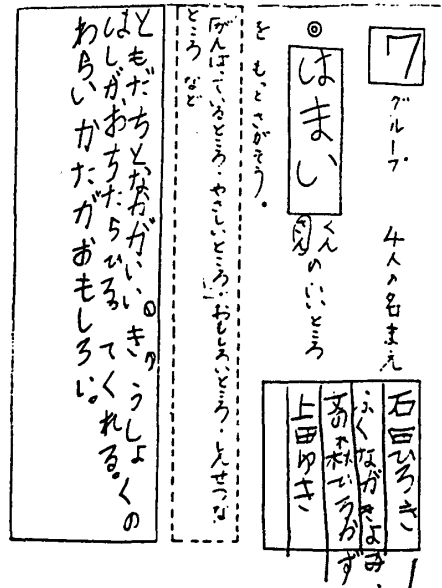 7 グループ 4人の名まえ
石田ひろき
ふくながきよみ
上田ゆき
◎ はまい くん さん のいいところ
を もっとさがそう。
「がんばっているところ・やさしいところ・おもしろいところ・しんせつな
ところ」など
ともだちとなかがいい。きゅうしょくの
はしがおちたらひろってくれる。
わらいかたがおもしろい。